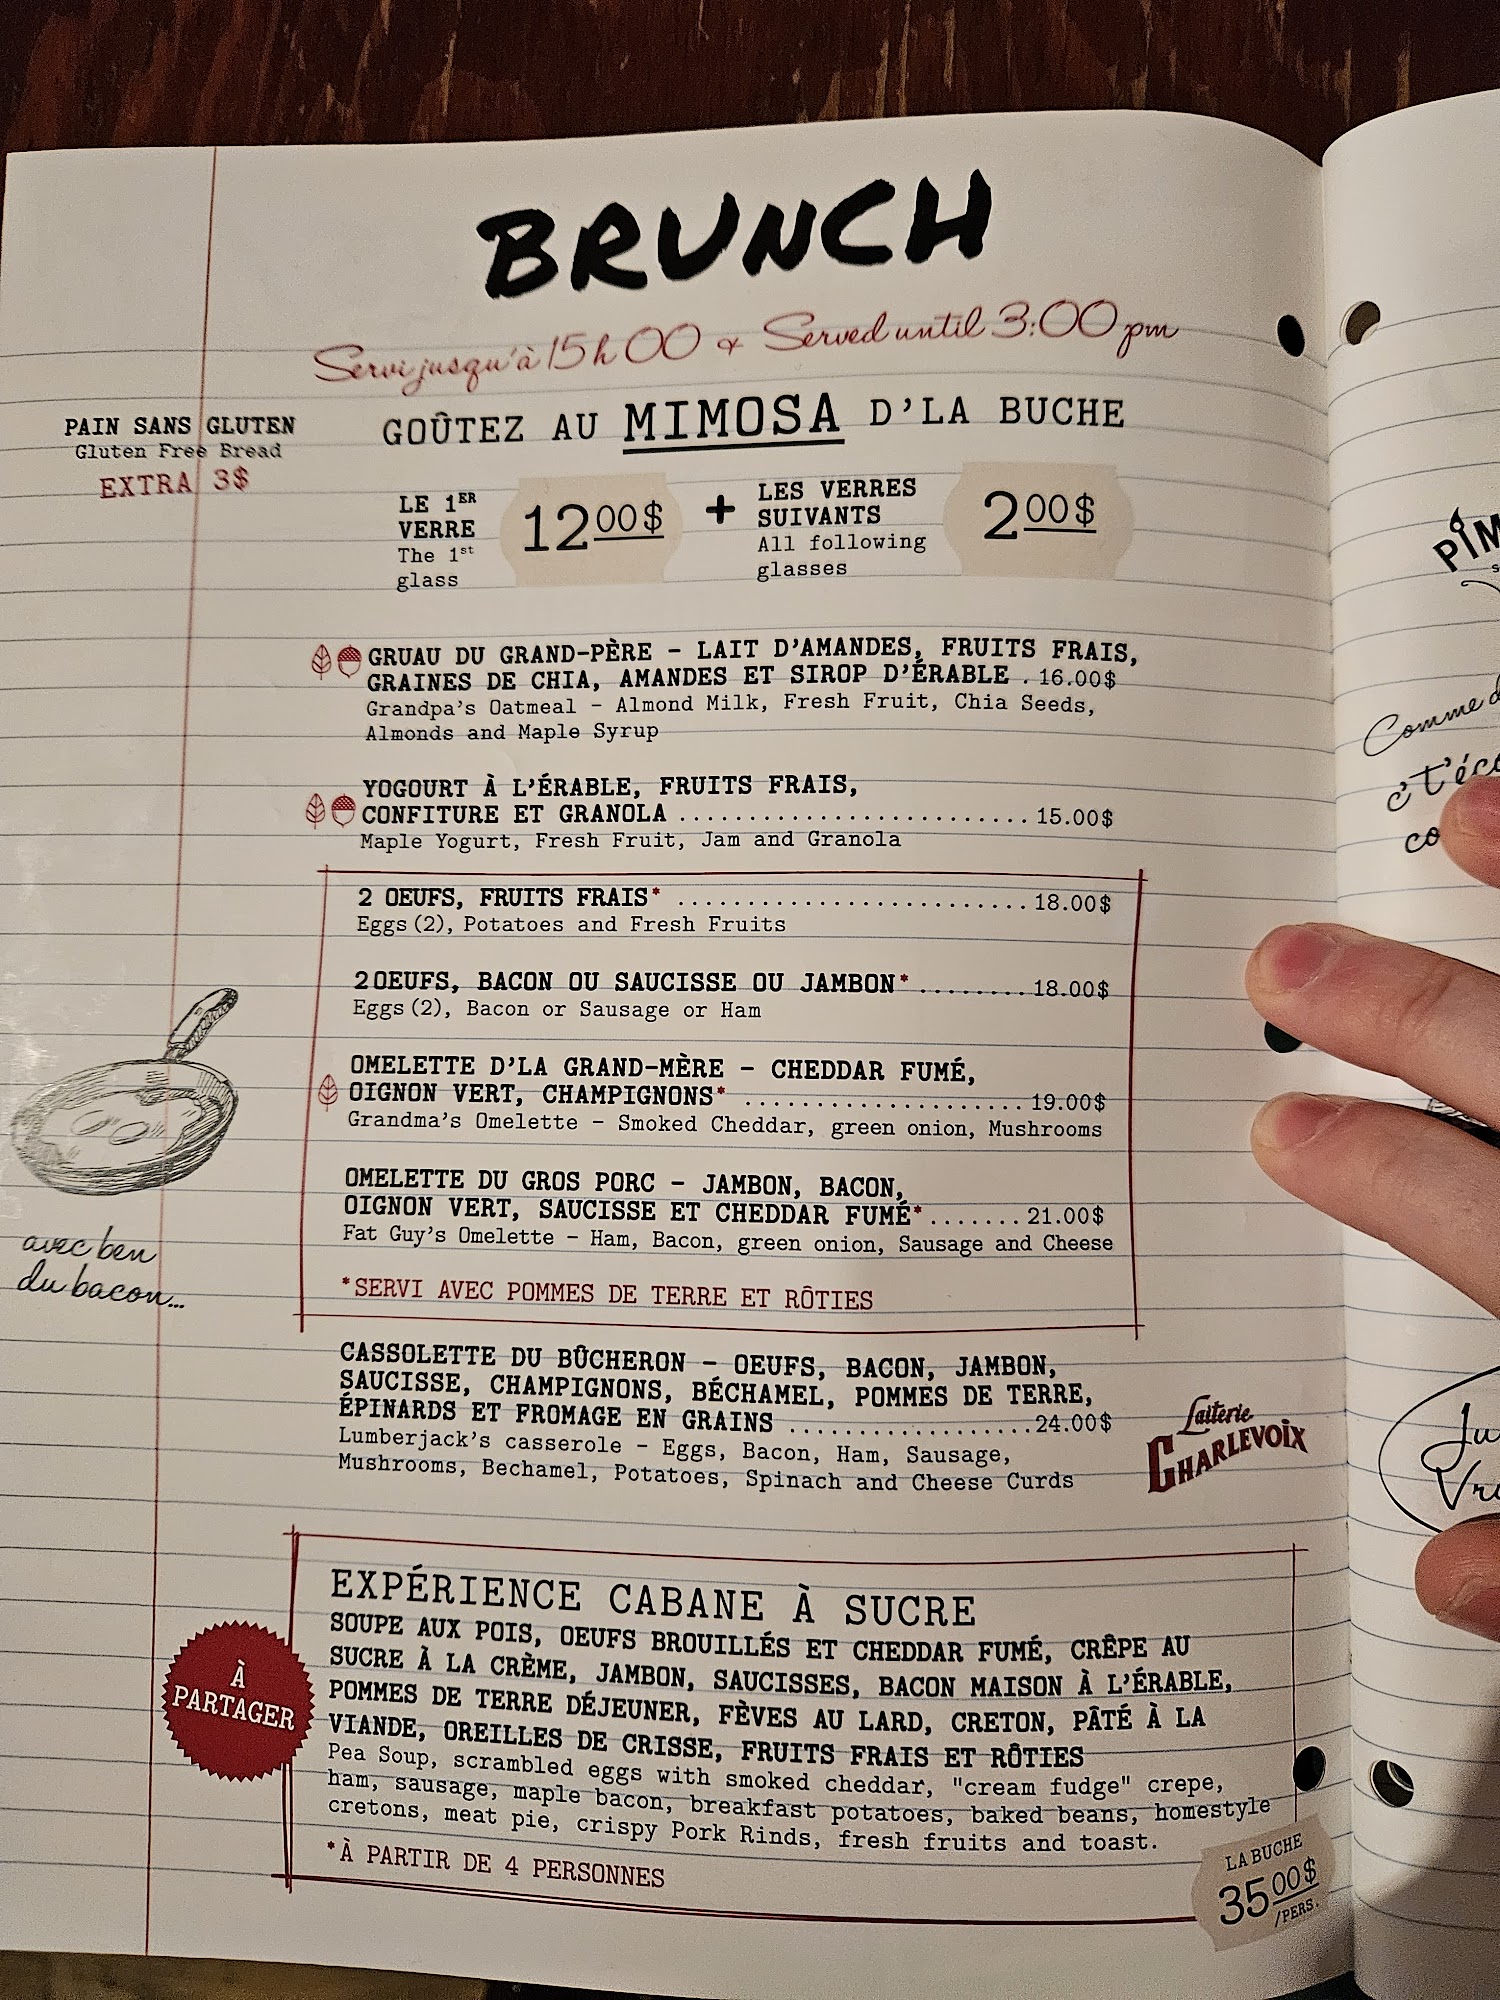 BRUNCH
Servi jusqu'à 15h00 & Served until 3:00 pm
PAIN SANS GLUTEN
Gluten Free Bread
EXTRA 3$
GOÛTEZ AU MIMOSA D'LA BUCHE
LE 1ER
VERRE
The 1st
glass
12 00$
+
LES VERRES
SUIVANTS
All following
glasses
2 00$
GRUAU DU GRAND-PÈRE – LAIT D'AMANDES, FRUITS FRAIS,
GRAINES DE CHIA, AMANDES ET SIROP D'ÉRABLE . 16.00$
Grandpa's Oatmeal – Almond Milk, Fresh Fruit, Chia Seeds,
Almonds and Maple Syrup
YOGOURT À L'ÉRABLE, FRUITS FRAIS,
CONFITURE ET GRANOLA ........................ 15.00$
Maple Yogurt, Fresh Fruit, Jam and Granola
2 OEUFS, FRUITS FRAIS* ........................ 18.00$
Eggs (2), Potatoes and Fresh Fruits
2OEUFS, BACON OU SAUCISSE OU JAMBON* ........ 18.00$
Eggs (2), Bacon or Sausage or Ham
OMELETTE D'LA GRAND-MÈRE – CHEDDAR FUMÉ,
OIGNON VERT, CHAMPIGNONS* ................... 19.00$
Grandma's Omelette – Smoked Cheddar, green onion, Mushrooms
OMELETTE DU GROS PORC – JAMBON, BACON,
OIGNON VERT, SAUCISSE ET CHEDDAR FUMÉ*....... 21.00$
Fat Guy's Omelette – Ham, Bacon, green onion, Sausage and Cheese
*SERVI AVEC POMMES DE TERRE ET RÔTIES
avec ben
du bacon...
CASSOLETTE DU BÛCHERON – OEUFS, BACON, JAMBON,
SAUCISSE, CHAMPIGNONS, BÉCHAMEL, POMMES DE TERRE,
ÉPINARDS ET FROMAGE EN GRAINS .................24.00$
Lumberjack's casserole – Eggs, Bacon, Ham, Sausage,
Mushrooms, Bechamel, Potatoes, Spinach and Cheese Curds
Laiterie
CHARLEVOIX
EXPÉRIENCE CABANE À SUCRE
SOUPE AUX POIS, OEUFS BROUILLÉS ET CHEDDAR FUMÉ, CRÊPE AU
SUCRE À LA CRÈME, JAMBON, SAUCISSES, BACON MAISON À L'ÉRABLE,
POMMES DE TERRE DÉJEUNER, FÈVES AU LARD, CRETON, PÂTÉ À LA
VIANDE, OREILLES DE CRISSE, FRUITS FRAIS ET RÔTIES
Pea Soup, scrambled eggs with smoked cheddar, "cream fudge" crepe,
ham, sausage, maple bacon, breakfast potatoes, baked beans, homestyle
cretons, meat pie, crispy Pork Rinds, fresh fruits and toast.
*À PARTIR DE 4 PERSONNES
À
PARTAGER
LA BUCHE
35 00$
/PERS.
Comme